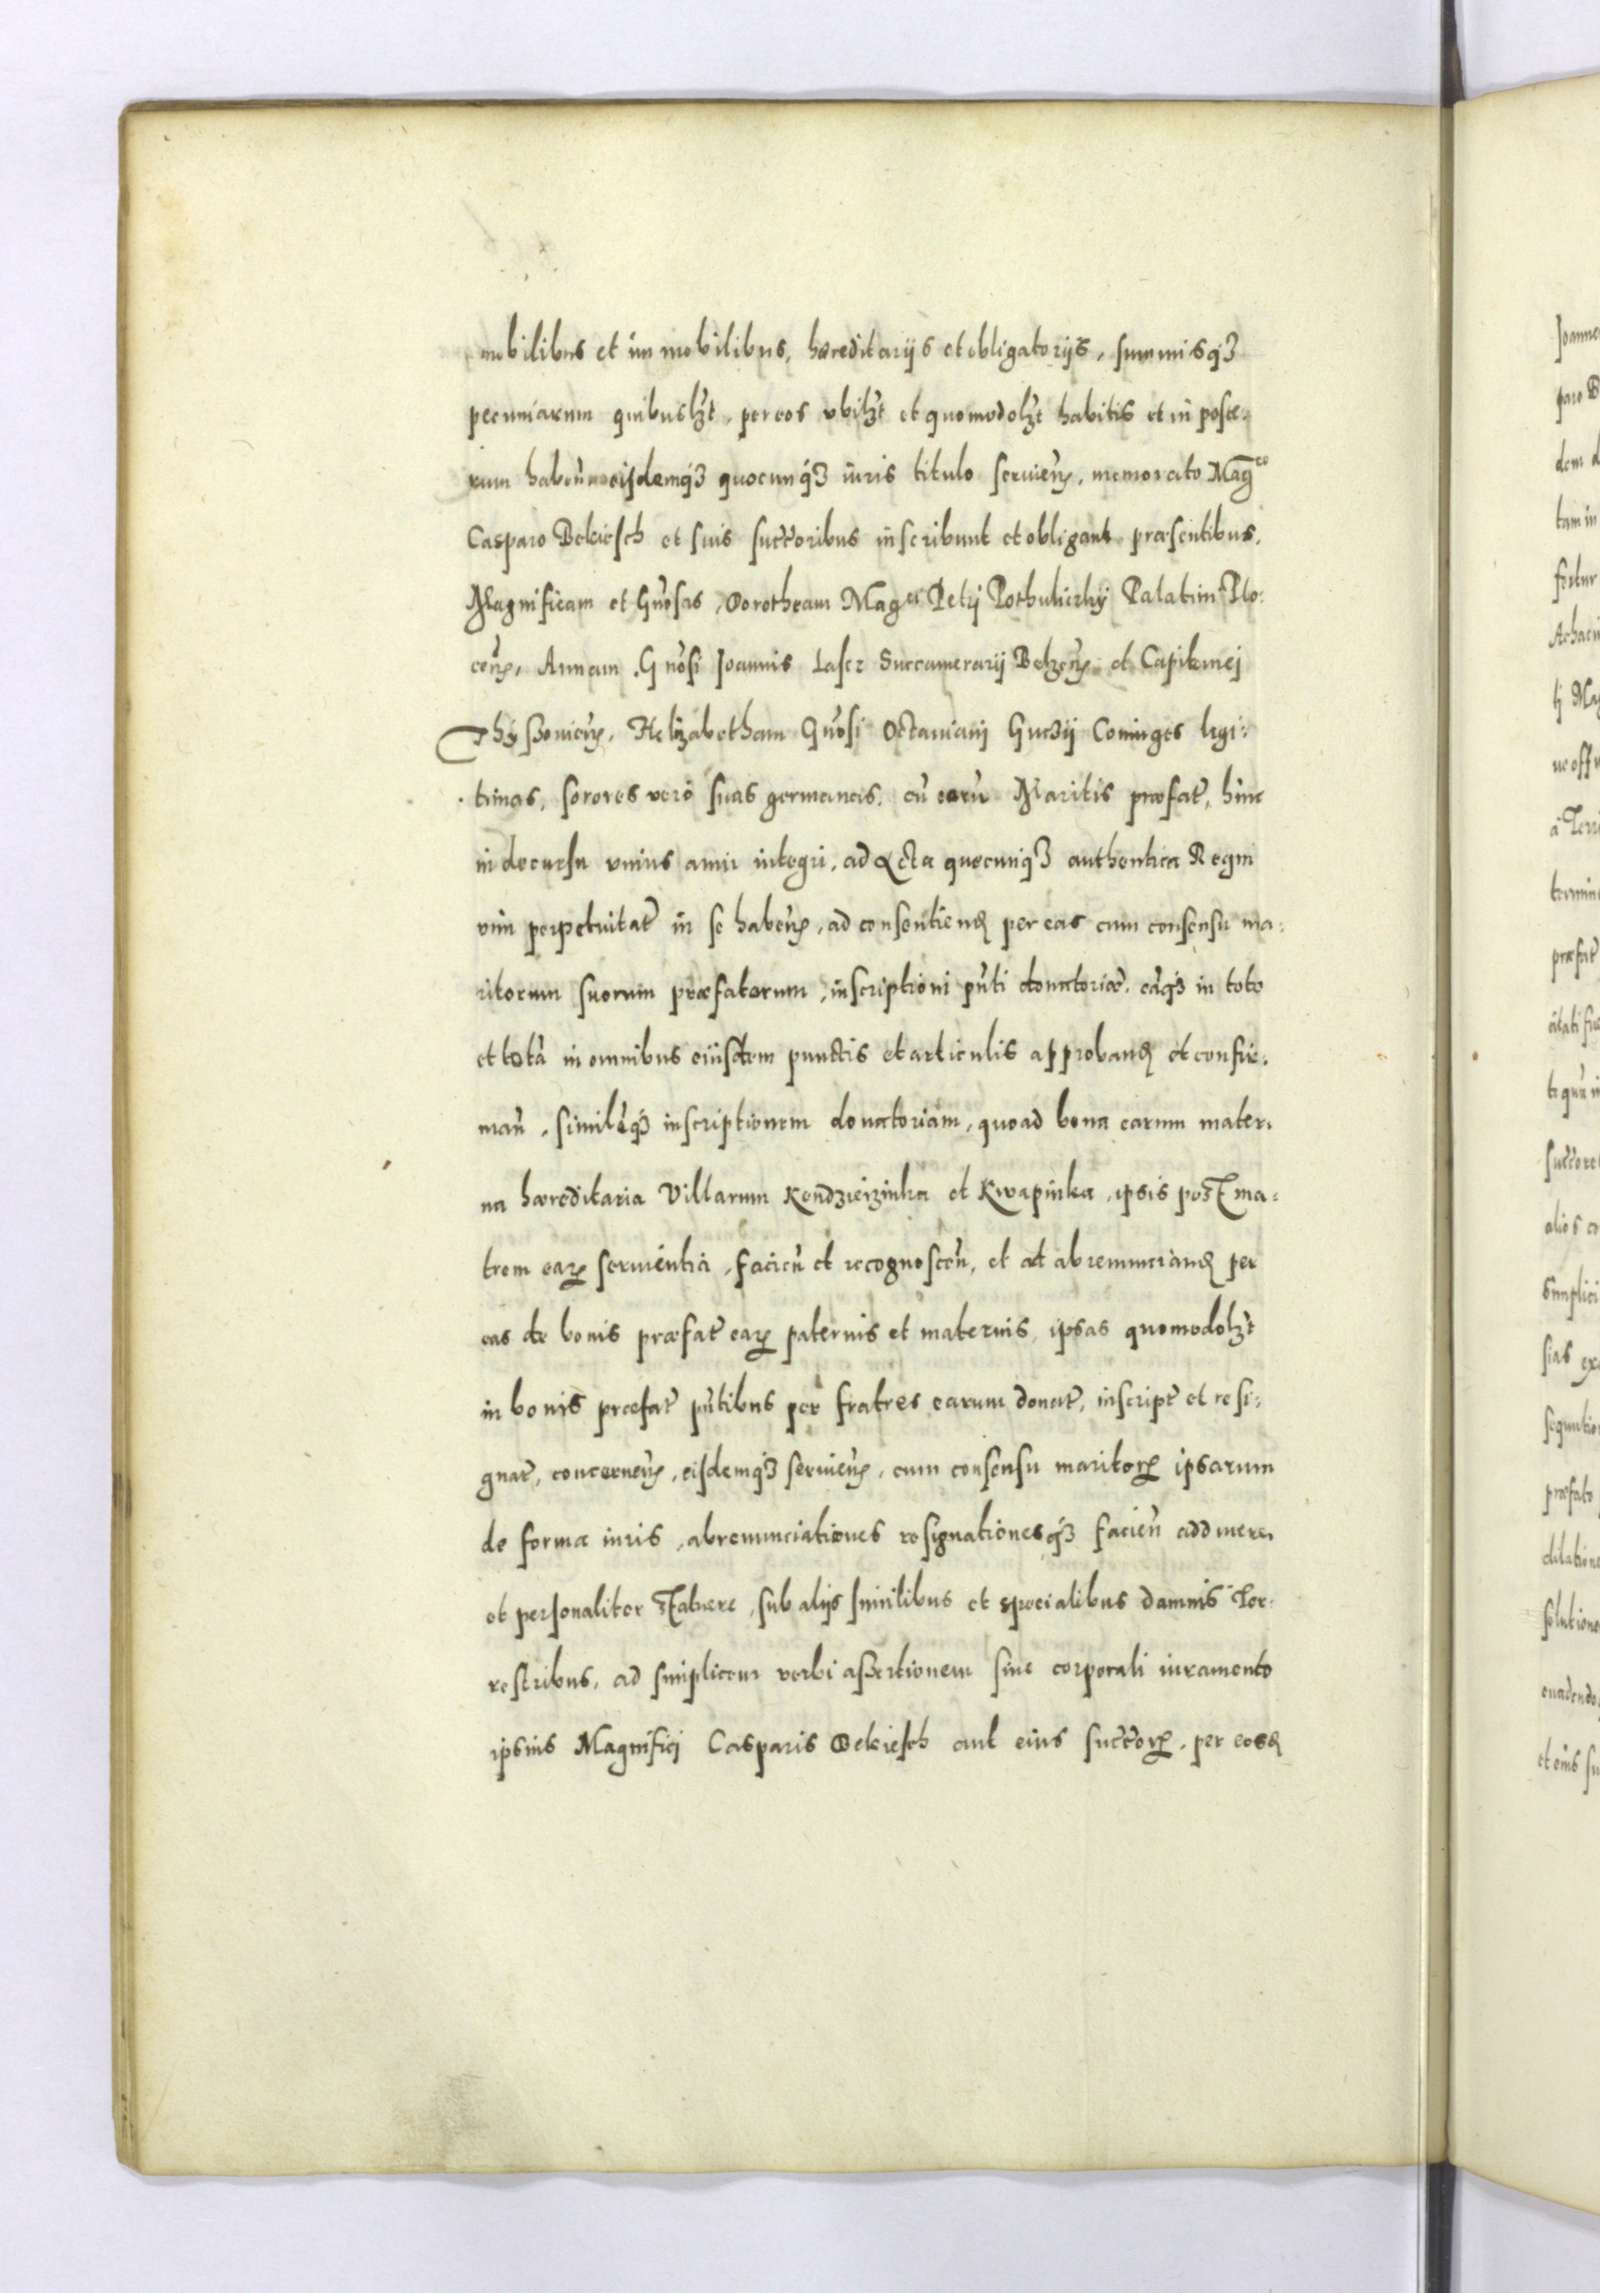 mobilibus et im mobilibus, hæreditarijs et obligatorijs, summisq3
pecuniarum quibuslzt, per eos vbilzt et quomodolzt habitis et in poste-
rum habeñ eisdemq3 quocunq3 iuris titulo servieñ, memorato Magco
Casparo Bekiesch et suis succoribus inscribunt et obligant præsentibus.
Magnificam et Gñosas, Dorotheam Magci Petrj Pothulickij Palatini Plo-
ceñ, Annam Gñosi Joannis Lascz Succamerarij Belzeñ et Capitanej
Thyssovicieñ, Helizabetham Gñosi Octaviani Guczij Cominges legi-
timas, sorores verò suas germanas, cũ earũ Maritis præfat, hinc
in decursu vnius anni integri, ad Acta quecunq3 authentica Regni
vim perpetuitat in se habeñ, ad consentiend per eas cum consensu ma-
ritorum suorum præfatorum, inscriptioni pñti donatoriæ, eãq3 in toto
et totã in omnibus eiusdem punctis et articulis approband et confir-
mañ, similẽq3 inscriptionem donatoriam, quoad bona earum mater-
na hæreditaria Villarum Kendzierzinka et Kwapinka, ipsis post ma-
trem ear servientia, facieñ et recognosceñ, et ad abrenunciand per
eas de bonis præfat ear paternis et maternis, ipsas quomodolzt
in bonis præfat pñtibus per fratres earum donat, inscript et resi-
gnat, concerneñ, eisdemq3 servieñ, cum consensu maritor ipsarum
de forma iuris, abrenunciationes resignationesq3 facieñ adducere,
et personaliter statuere, sub alijs similibus et specialibus damnis Ter-
restribus, ad simplicem verbi assertionem sine corporali iuramento
ipsius Magnificj Casparis Bekiesch aut eius succor, per eosd